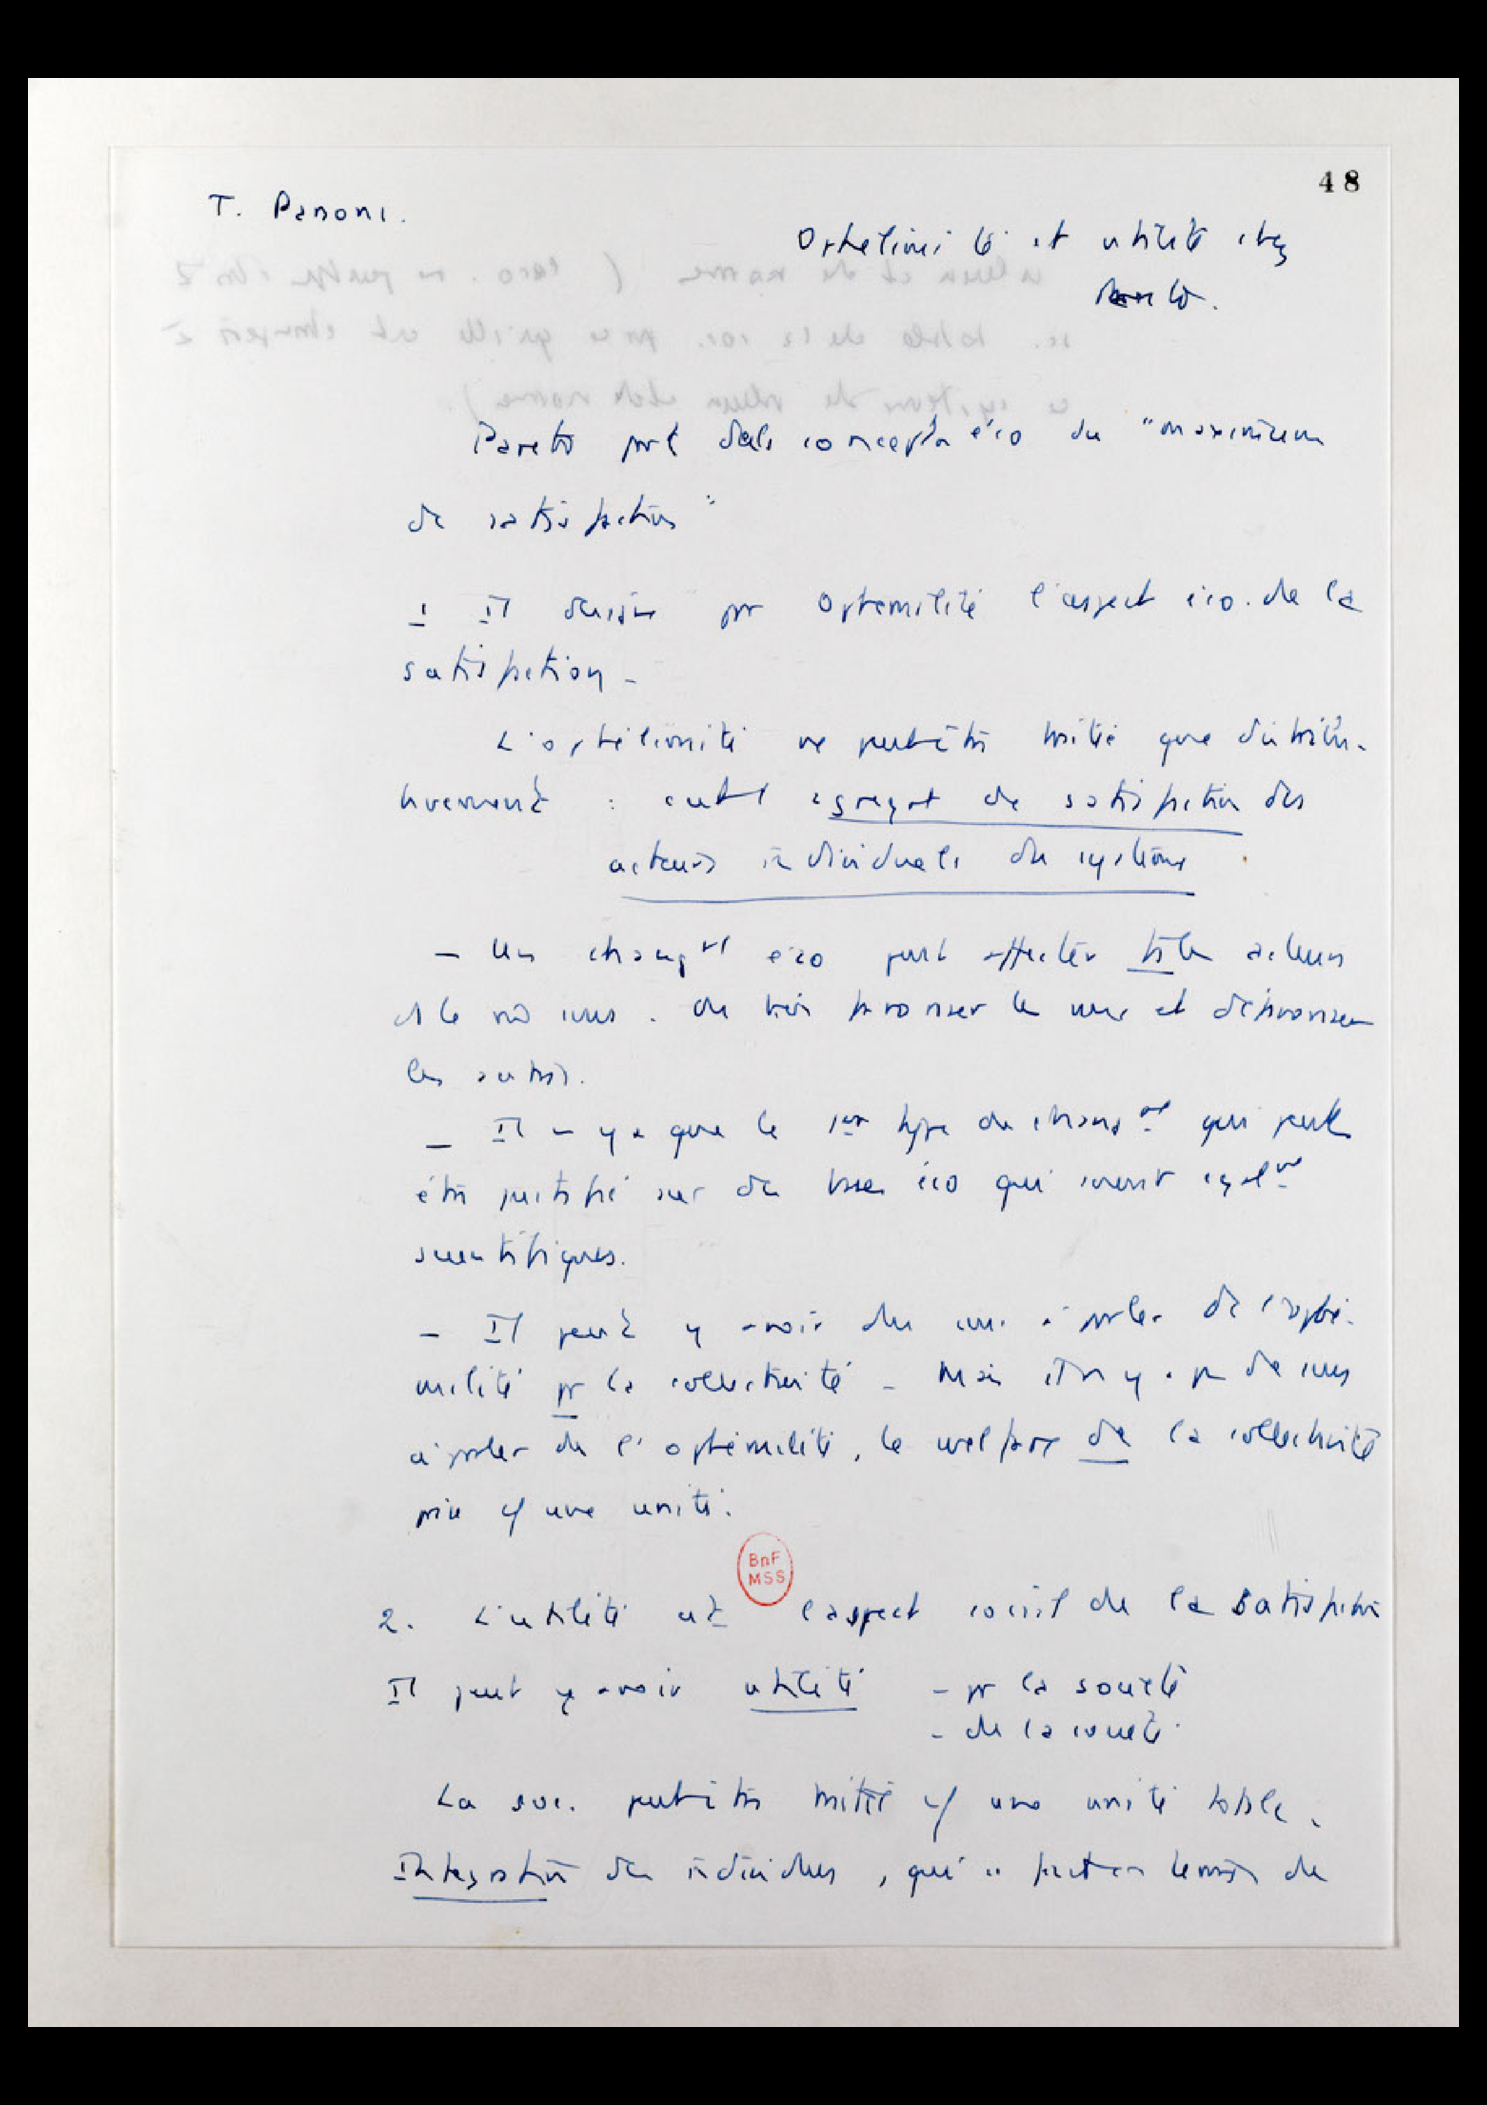 48
T. Parsons.
Ophélimité et utilité chez
Pareto.
Pareto part de la concept° éco du "maximum
de satisfaction"
1 Il désigne pr Ophémilité l'aspect éco. de la
satisfaction -
L'ophélimité ne peut être traitée que distribu-
tivement : c'est l'agrégat de satisfaction des
acteurs individuels du système.
- Un changt éco peut affecter ts les acteurs
ds le m sens. ou bien favoriser les uns et défavoriser
les autres.
- Il n'y a que le 1er type de changt qui peut
être justifié sur des bases éco qui soient égalt
scientifiques.
- Il peut y avoir du sens à parler de l'ophé-
milité pr la collectivité - Mais il n'y a pas de sens
à parler de l'ophémilité, le welfare de la collectivité
prise c/ une unité.
BnF
MSS
2. L'utilité est l'aspect social de la satisfaction
Il peut y avoir utilité - pr la société
- de la société.
La soc. peut être traitée c/ une unité totale.
Intégration des individus, qui se fait en termes de